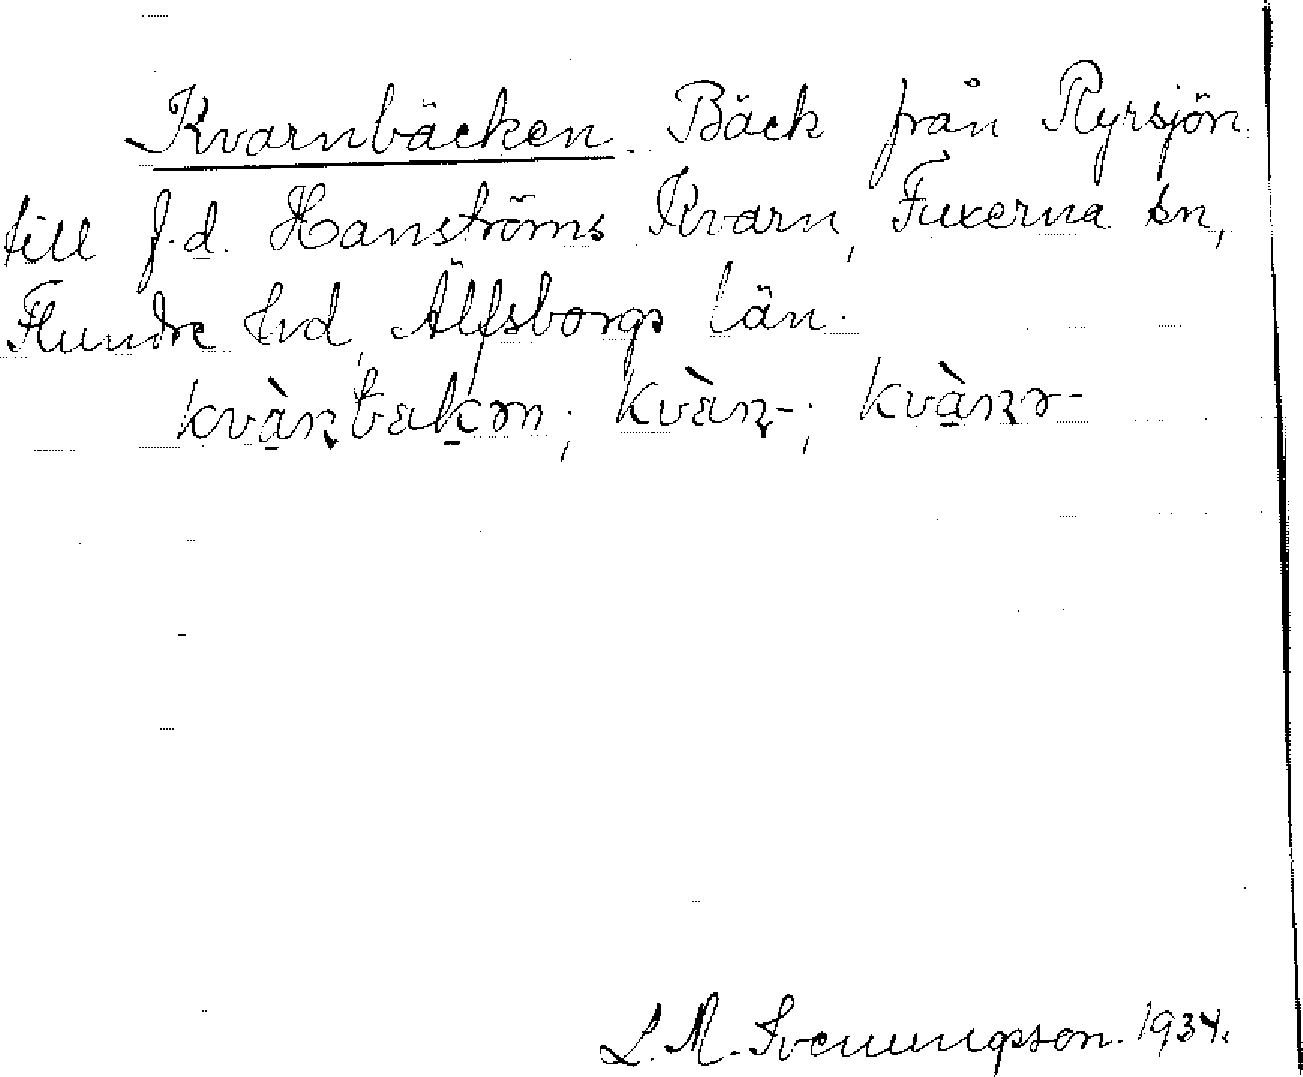 Kvarnbäcken. Bäck från Ryrsjön
till f.d. Hanströms Kvarn, Fuxerna sn,
Flundre hd, Älfsborgs län.
kvàɳbækən; kvæ̀ɳ-; kvàɳə-
L. M. Svenungsson. 1934.